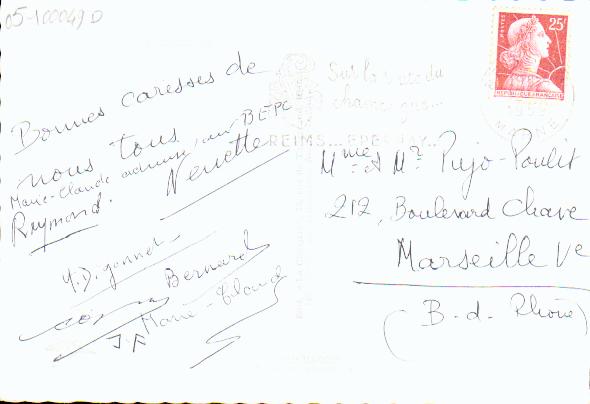 05-100049 D
Bonnes caresses de
nous tous
Marie-Claude admise au BEPC
Raymond. Nenette
Y. D. Jonnet
Bernard
Marie-Claude
J.F
Sur la route du
champagne
REIMS... EPERNAY..
POSTES
25F
REPUBLIQUE FRANCAISE
MARNE
Mme et Mr Pujo-Poulit
212, Boulevard Chave
Marseille Ve
(B-d-Rhône)